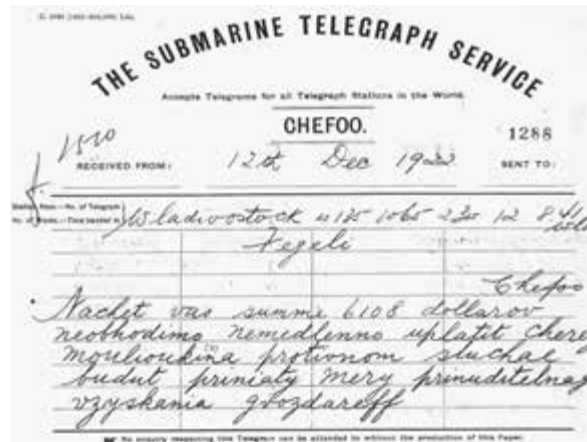 THE SUBMARINE TELEGRAPH SERVICE
Accepts Telegrams for all Telegraph Stations in the World.
CHEFOO.
1288
RECEIVED FROM:
12th Dec 1922
SENT TO:
No. of Telegram
Wladiwostock
Fegeli
Chefoo
Nachet vas summe 6108 dollarov
neobhodimo nemedlenno uplatit chere
moulioukina protivnom sluchae
budut priniaty mery prinuditelnag
vzyskania gvozdareff
No enquiry respecting this Telegram can be attended to without the production of this Paper.